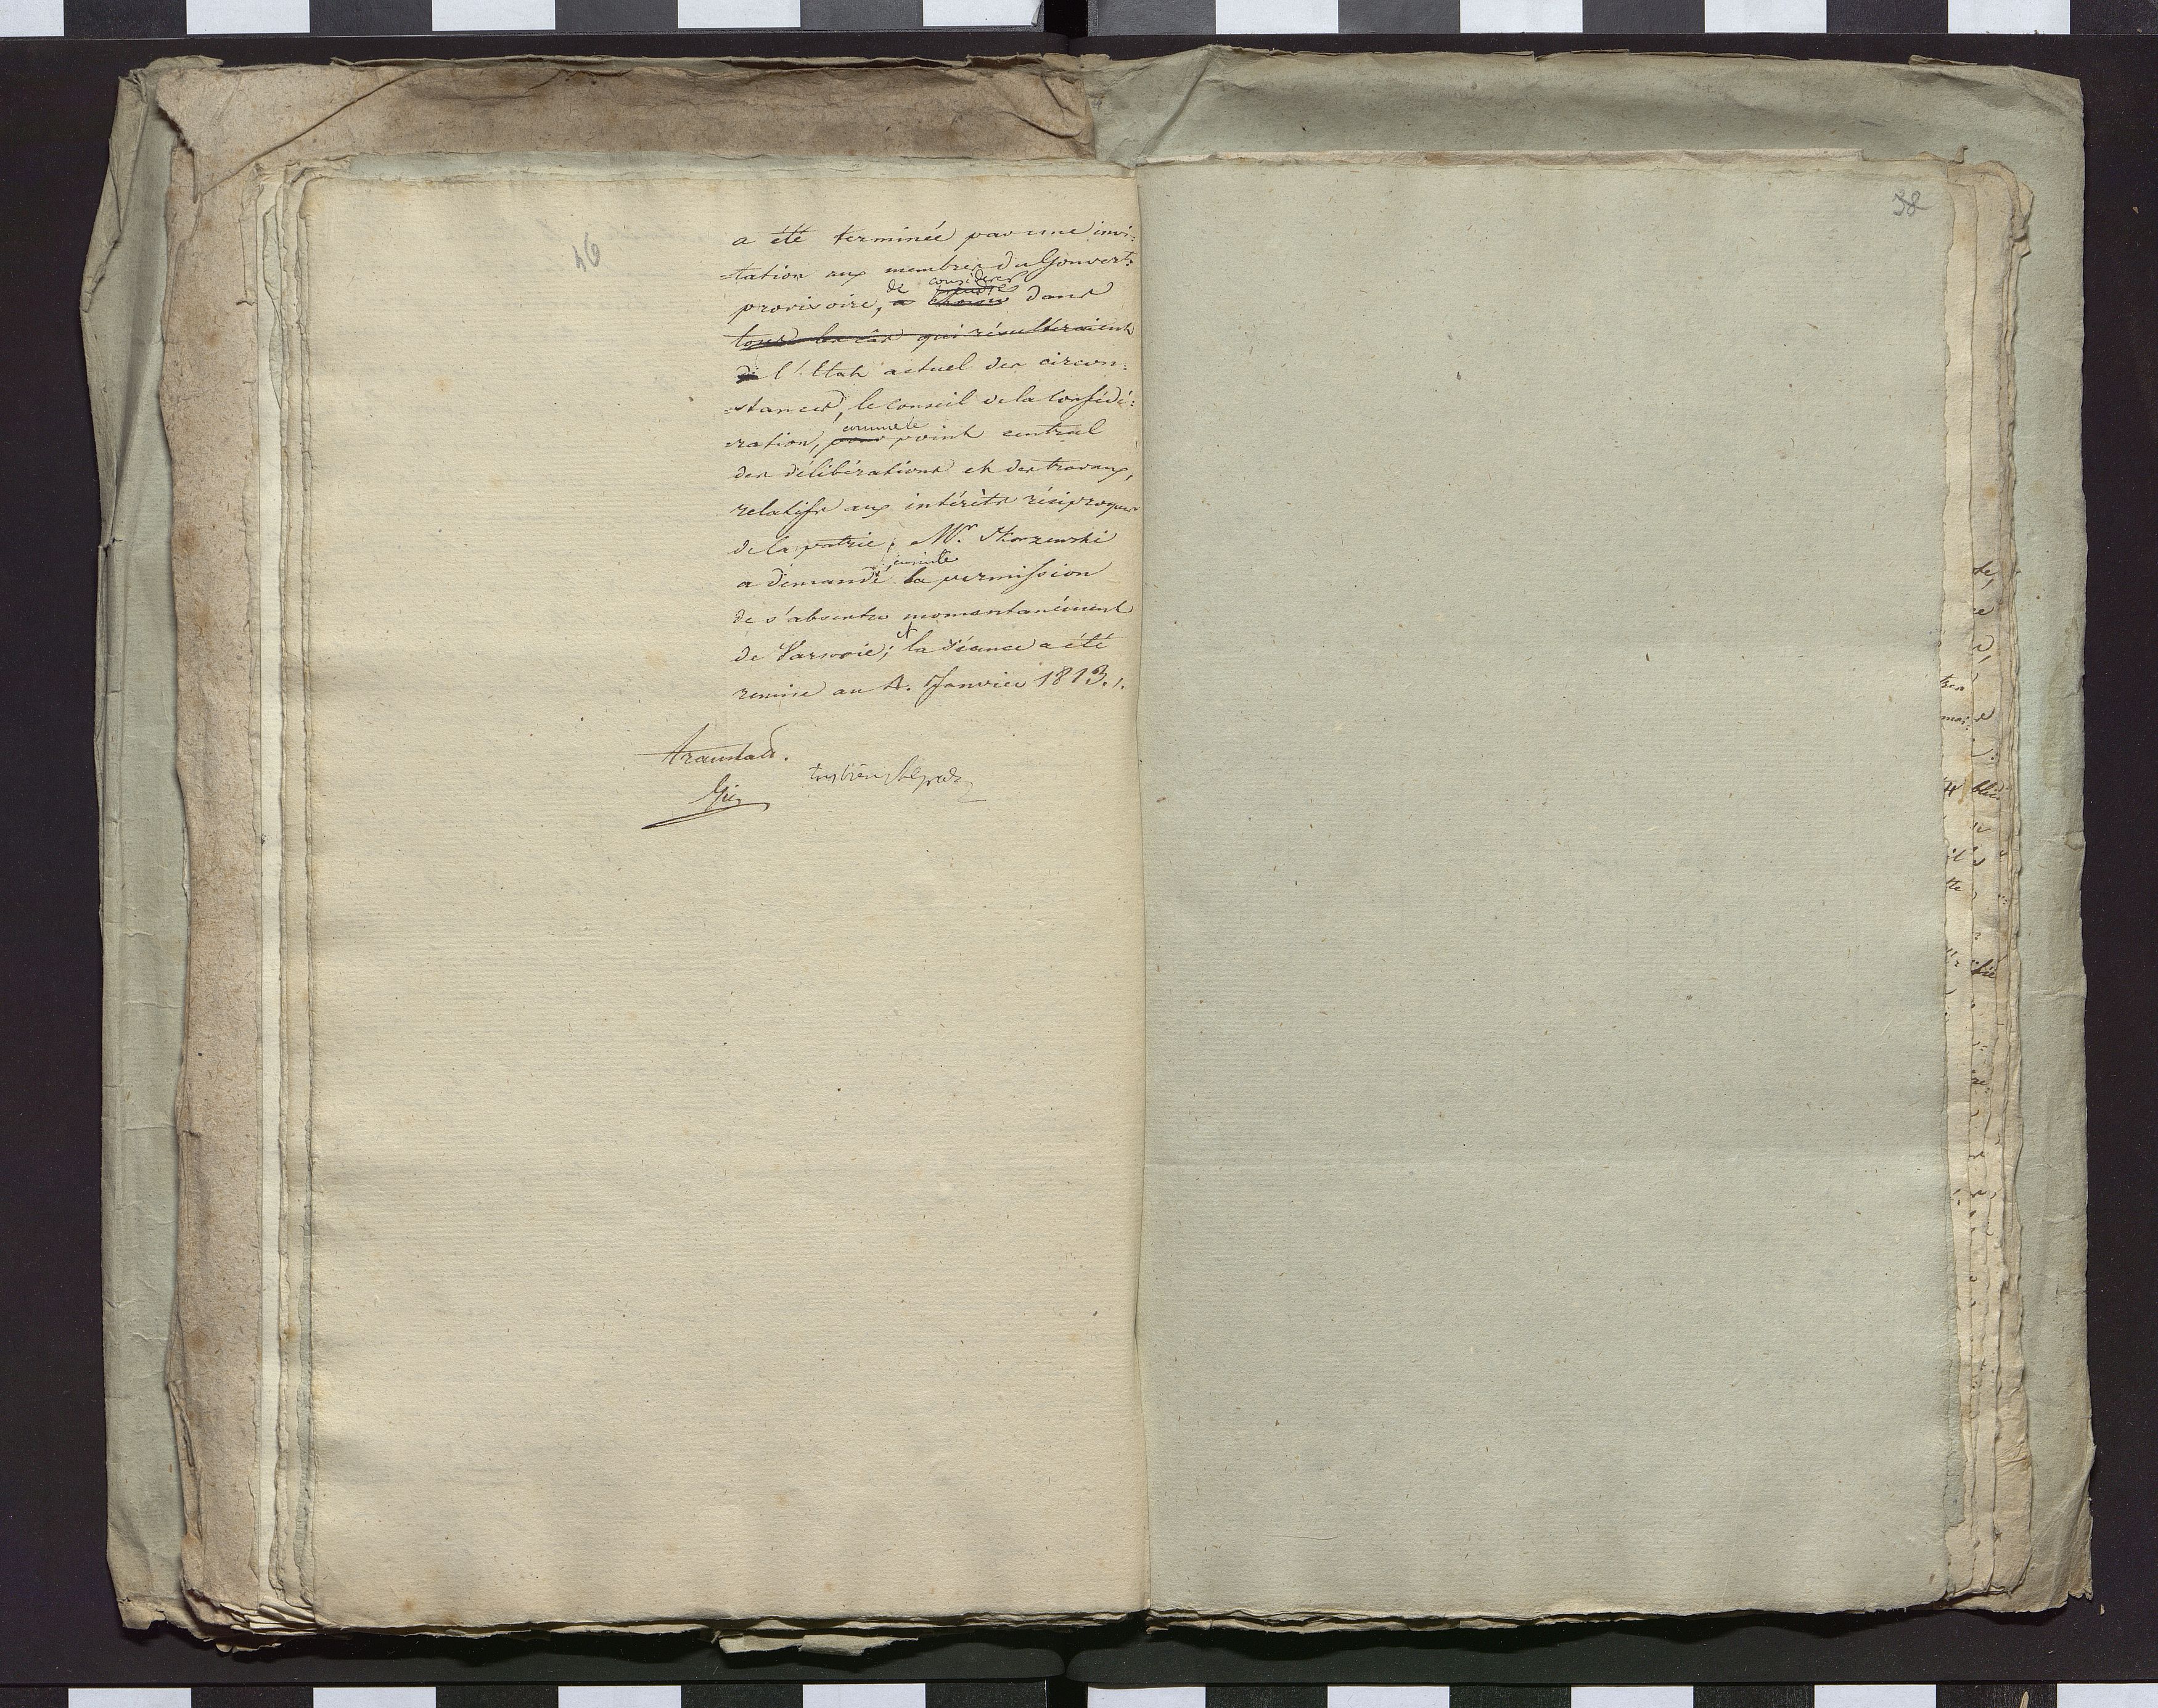 46
a été terminée par une invi:
=tation aux membres du Gouvert:
provisoire, de considérer dans
tous les cas qui résulteraient
de l'Etat actuel des circon:
=stances, le conseil de la Confédé:
=ration, comme le point central
des délibérations et des travaux,
relatifs aux intérèts réciproques
de la patrie; Mr. Skorzewski
a demandé ensuite la permission
de s'absenter momentanément
de Varsovie; et la séance a été
remise au 4. Janvier 1813./.
38